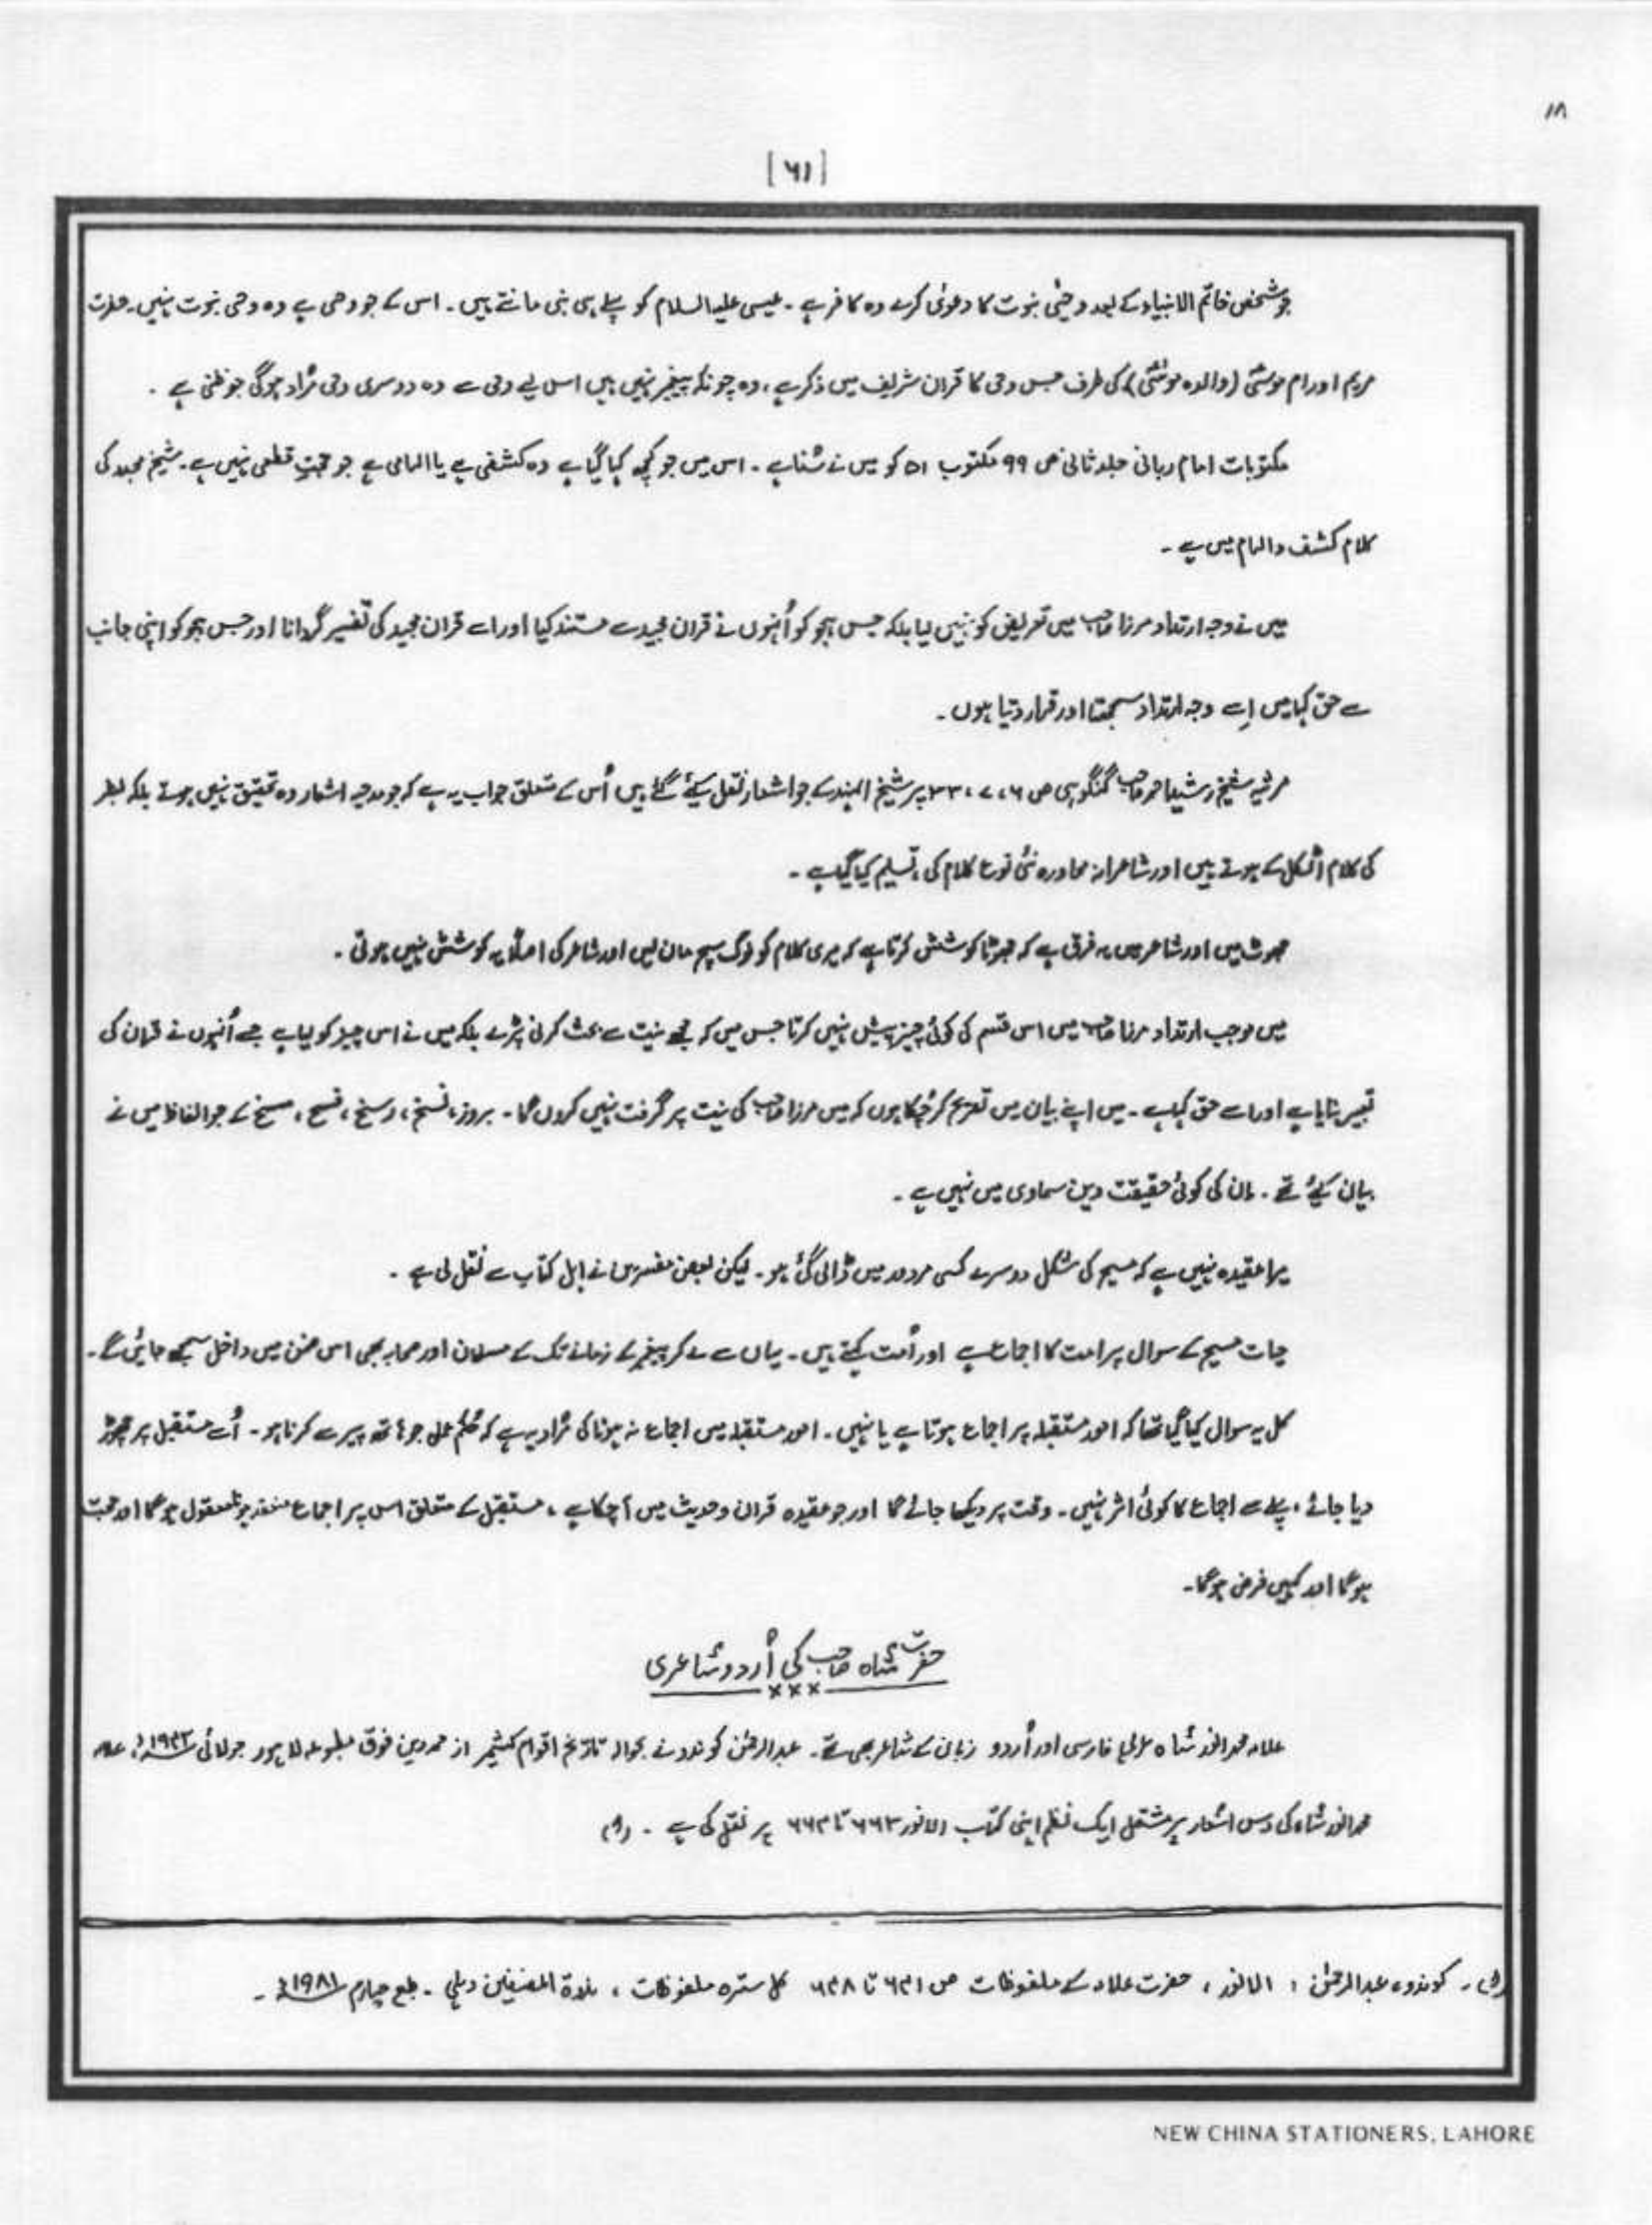 ۱۸
[۶۱]
جو شخص خاتم الانبیاء کے بعد وحیٔ نبوت کا دعویٰ کرے وہ کافر ہے ۔ عیسیٰ علیہ السلام کو پہلے ہی نبی مانتے ہیں ۔ اس کے جو وحی ہے وہ وحی نبوت نہیں ۔ حضرت
مریم اور ام موسیٰؑ (والدہ موسیٰؑ) کی طرف جس وحی کا قران شریف میں ذکر ہے ، وہ چونکہ پیغمبر نہیں ہیں اس لیے وحی سے وہ دوسری وحی مُراد ہوگی جو ظنی ہے ۔
مکتوبات امام ربانی جلد ثانی ص ۹۹ مکتوب ۵۱ کو میں نے سُنا ہے ۔ اس میں جو کچھ کہا گیا ہے وہ کشفی ہے یا الہامی ہے جو حجتِ قطعی نہیں ہے ۔ شیخ مجدد کی
کلام کشف و الہام میں ہے ۔
میں نے وجہ ارتداد مرزا صاحب میں تعریض کو نہیں لیا بلکہ جس ہجو کو اُنہوں نے قران مجید سے مستند کیا اور اسے قران مجید کی تفسیر گردانا اور جس ہجو کو اپنی جانب
سے حق کہا میں اِسے وجہ ارتداد سمجھتا اور قرار دیتا ہوں ۔
مرثیہ شیخ رشید احمد صاحب گنگوہی ص ۶ ، ۷ ، ۳۳ پر شیخ الہند کے جو اشعار نقل کیئے گئے ہیں اُس کے متعلق جواب یہ ہے کہ جو مدحیہ اشعار وہ تحقیق نہیں ہوتے بلکہ بطر
کی کلام اٹکل کے ہوتے ہیں اور شاعرانہ محاورہ نئی نوع کلام کی ، تسلیم کیا گیا ہے ۔
جھوٹ میں اور شاعر میں یہ فرق ہے کہ جھوٹا کوشش کرتا ہے کہ میری کلام کو لوگ سچ مان لیں اور شاعر کی اصلًا یہ کوشش نہیں ہوتی ۔
میں موجب ارتداد مرزا صاحب میں اس قسم کی کوئی چیز پیش نہیں کرتا جس میں کہ مجھے نیت سے بحث کرنی پڑے بلکہ میں نے اس چیز کو لیا ہے جسے اُنہوں نے قران کی
تفسیر بنایا ہے اور اسے حق کہا ہے ۔ میں اپنے بیان میں تصریح کر چکا ہوں کہ میں مرزا صاحب کی نیت پر گرفت نہیں کروں گا ۔ بروز ، نسخ ، رسخ ، فسخ ، مسخ کے جو الفاظ میں نے
بیان کیئے تھے ۔ ان کی کوئی حقیقت دین سماوی میں نہیں ہے ۔
میرا عقیدہ نہیں ہے کہ مسیح کی شکل دوسرے کسی مردود میں ڈالی گئی ہو ۔ لیکن بعض مفسرین نے اہل کتاب سے نقل لی ہے ۔
حیات مسیح کے سوال پر امت کا اجماع ہے اور اُمت کہتے ہیں ۔ یہاں سے لے کر پیغمبر کے زمانے تک کے مسلمان اور صحابہ بھی اس ضمن میں داخل سمجھے جائیں گے ۔
کل یہ سوال کیا گیا تھا کہ امور مستقبلہ پر اجماع ہوتا ہے یا نہیں ۔ امور مستقبلہ میں اجماع نہ ہونا کی مُراد یہ ہے کہ حُکم عملی جو ہاتھ پیر سے کرنا ہو ۔ اُسے مستقبل پر چھوڑ
دیا جائے ، پہلے سے اجماع کا کوئی اثر نہیں ۔ وقت پر دیکھا جائے گا اور جو عقیدہ قران و حدیث میں آ چکا ہے ، مستقبل کے متعلق اس پر اجماع منعقد ہونا معقول ہوگا اور حجت
ہوگا اور کہیں فرض ہوگا ۔
حضرت شاہ صاحب کی اُردو شاعری
×××
علامہ محمد انور شاہ عربی فارسی اور اُردو زبان کے شاعر بھی تھے ۔ عبدالرحمٰن کوندو نے بحوالہ تاریخ اقوام کشمیر از محمد دین فوق مطبوعہ لاہور جولائی ۱۹۴۳ء ، علامہ
محمد انور شاہ کی دس اشعار پر مشتمل ایک نظم اپنی کتاب الانور ۶۶۳ تا ۶۶۴ پر نقل کی ہے ۔ (۱)
(۱) ۔ کوندو ، عبدالرحمٰن : الانور ، حضرت علامہ کے ملفوظات ص ۶۳۱ تا ۶۳۸ کل سترہ ملفوظات ، ندوۃ المصنفین دہلی ۔ طبع چہارم ۱۹۸۱ء ۔
NEW CHINA STATIONERS, LAHORE